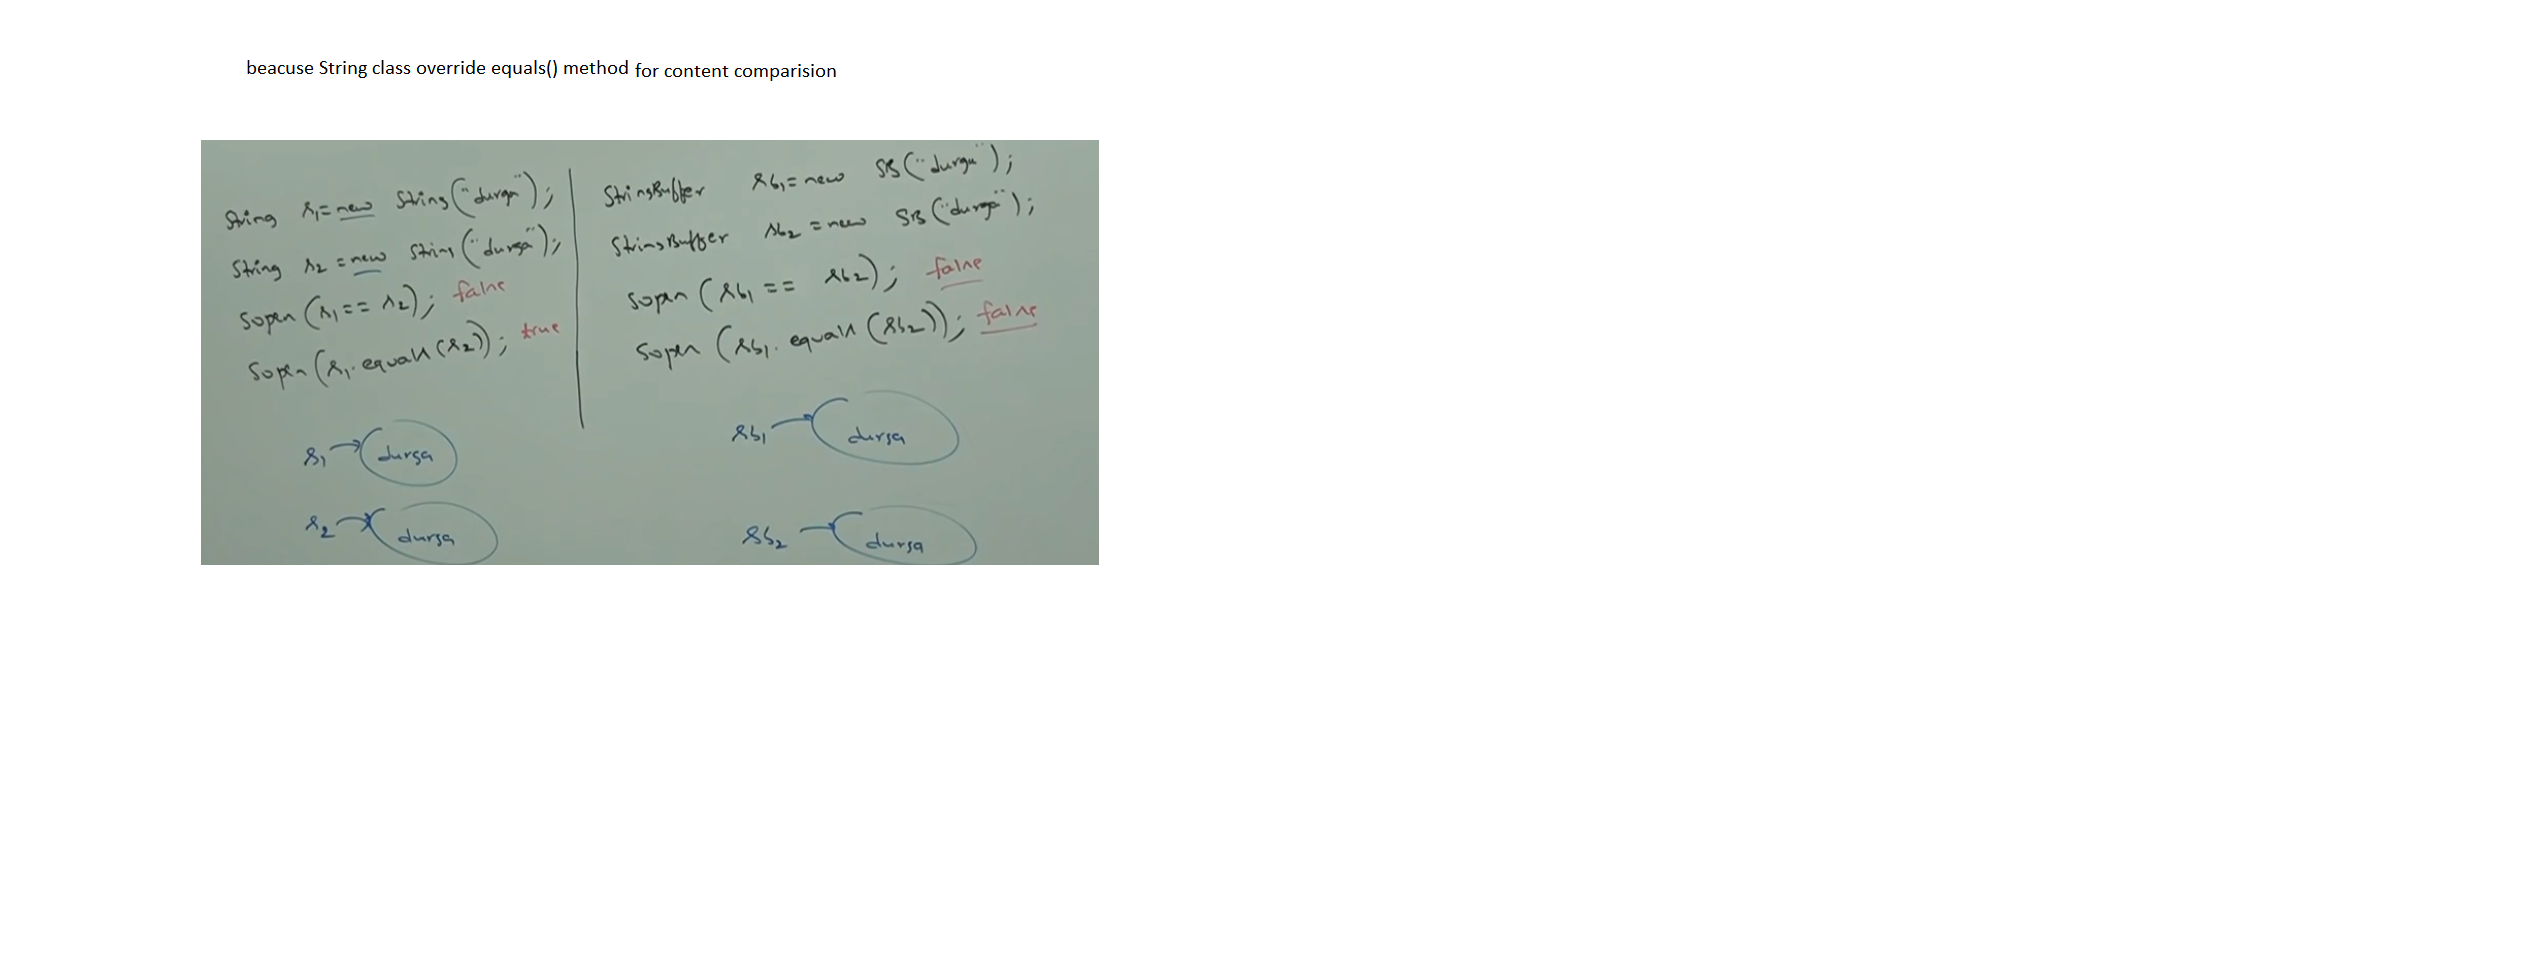 beacuse String class override equals() method for content comparision
String s1 = new String("durga");
String s2 = new String("durga");
sopln (s1 == s2); false
sopln (s1.equals(s2)); true
StringBuffer sb1 = new SB("durga");
StringBuffer sb2 = new SB("durga");
sopln (sb1 == sb2); false
sopln (sb1.equals(sb2)); false
s1 durga
s2 durga
sb1 durga
sb2 durga